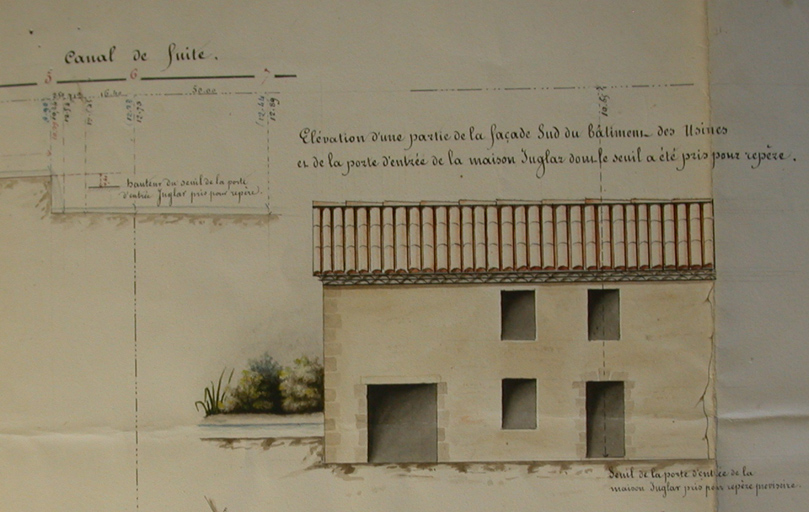 Canal de fuite.
5 6 7
16.40 50.00
12.44
12.89
10.65
Elévation d'une partie de la façade Sud du bâtiment des Usines
et de la porte d'entrée de la maison Juglar dont le seuil a été pris pour repère.
hauteur du seuil de la porte
d'entrée Juglar pris pour repère.
Seuil de la porte d'entrée de la
maison Juglar pris pour repère provisoire.